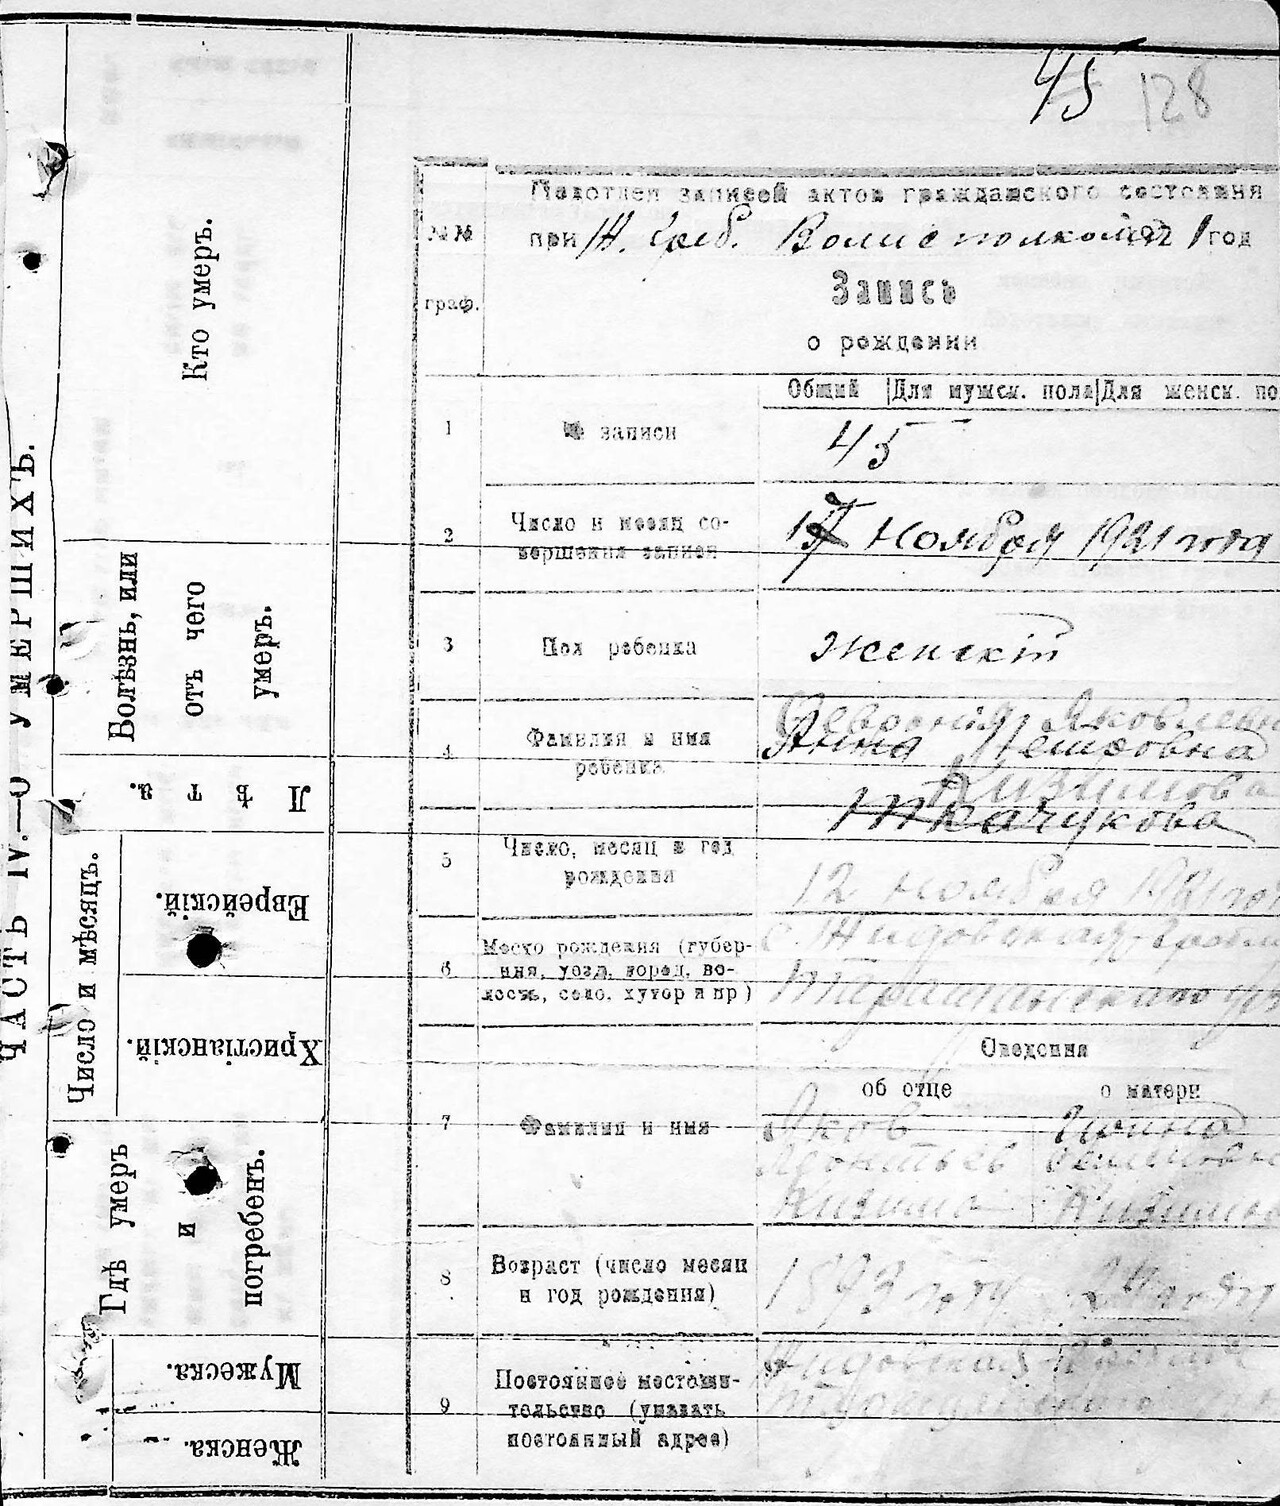 45 128
Подотдел записей актов гражданского состояния
при Ж. Греб. Волисполкоме 1921 год
Запись
о рождении
№№
граф.
Общий Для мужск. пола Для женск. по
1 № записи 45
2 Число и месяц со-
вершения записи
17 Ноября 1921 года
3 Пол ребенка Женскій
4 Фамилия и имя
ребенка
Яковлевн
Анна Петровна
Кизимова
Ткачукова
5 Число, месяц и год
рождения
12 ноября 1921 го
6 Место рождения (губер-
ния, уезд, город, во-
лость, село, хутор и пр)
с Жидовская-Гребля
Таращанского у
Сведения
об отце о матери
7 Фамилия и имя
Яков
Леонтьев
Кизима
8 Возраст (число месяц
и год рождения)
1893 года
9 Постоянное местожи-
тельство (указать
постоянный адрес)
ЧАСТЬ IV.—О УМЕРШИХЪ.
Кто умеръ.
Болѣзнь, или
отъ чего
умеръ.
Лѣта.
Число и мѣсяцъ.
Еврейскій.
Христіанскій.
Гдѣ умеръ
и
погребенъ.
Мужеска.
Женска.